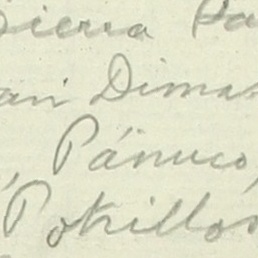 Sierra
Dimas
, Pánuco,
Potrillos